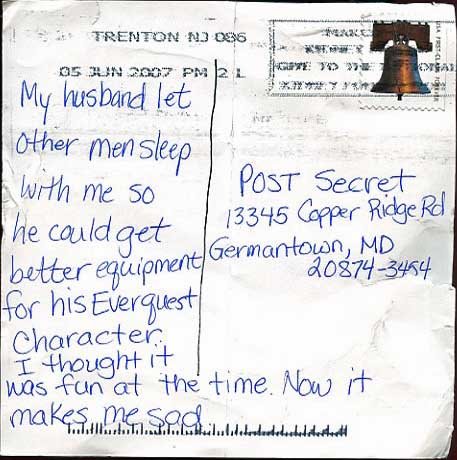 TRENTON NJ 086
05 JUN 2007 PM 2 L
My husband let
other men sleep
with me so
he could get
better equipment
for his Everquest
Character.
I thought it
was fun at the time. Now it
makes me sad
KIDNEY
GIVE TO THE NATIONAL
KIDNEY
USA FIRST-CLASS FOREVER
POST Secret
13345 Copper Ridge Rd
Germantown, MD
20874-3454